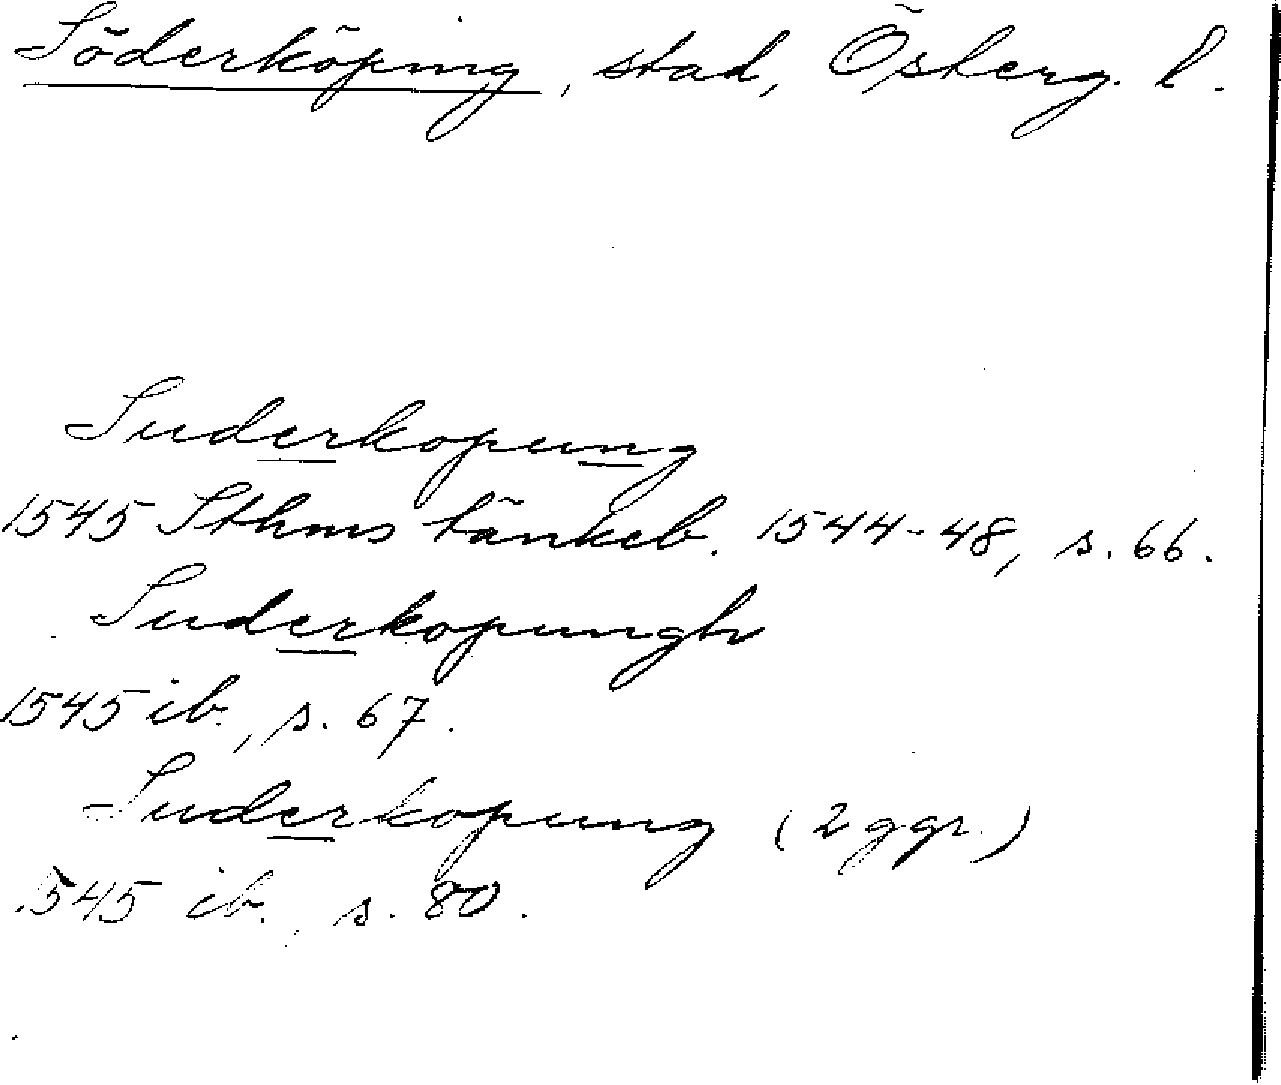 Söderköping, stad, Österg. l.
Suderkopung
1545 Sthms tänkeb. 1544-48, s. 66.
Suderkopungh
1545 ib., s. 67.
Suderkopung (2 ggr.)
1545 ib., s. 80.